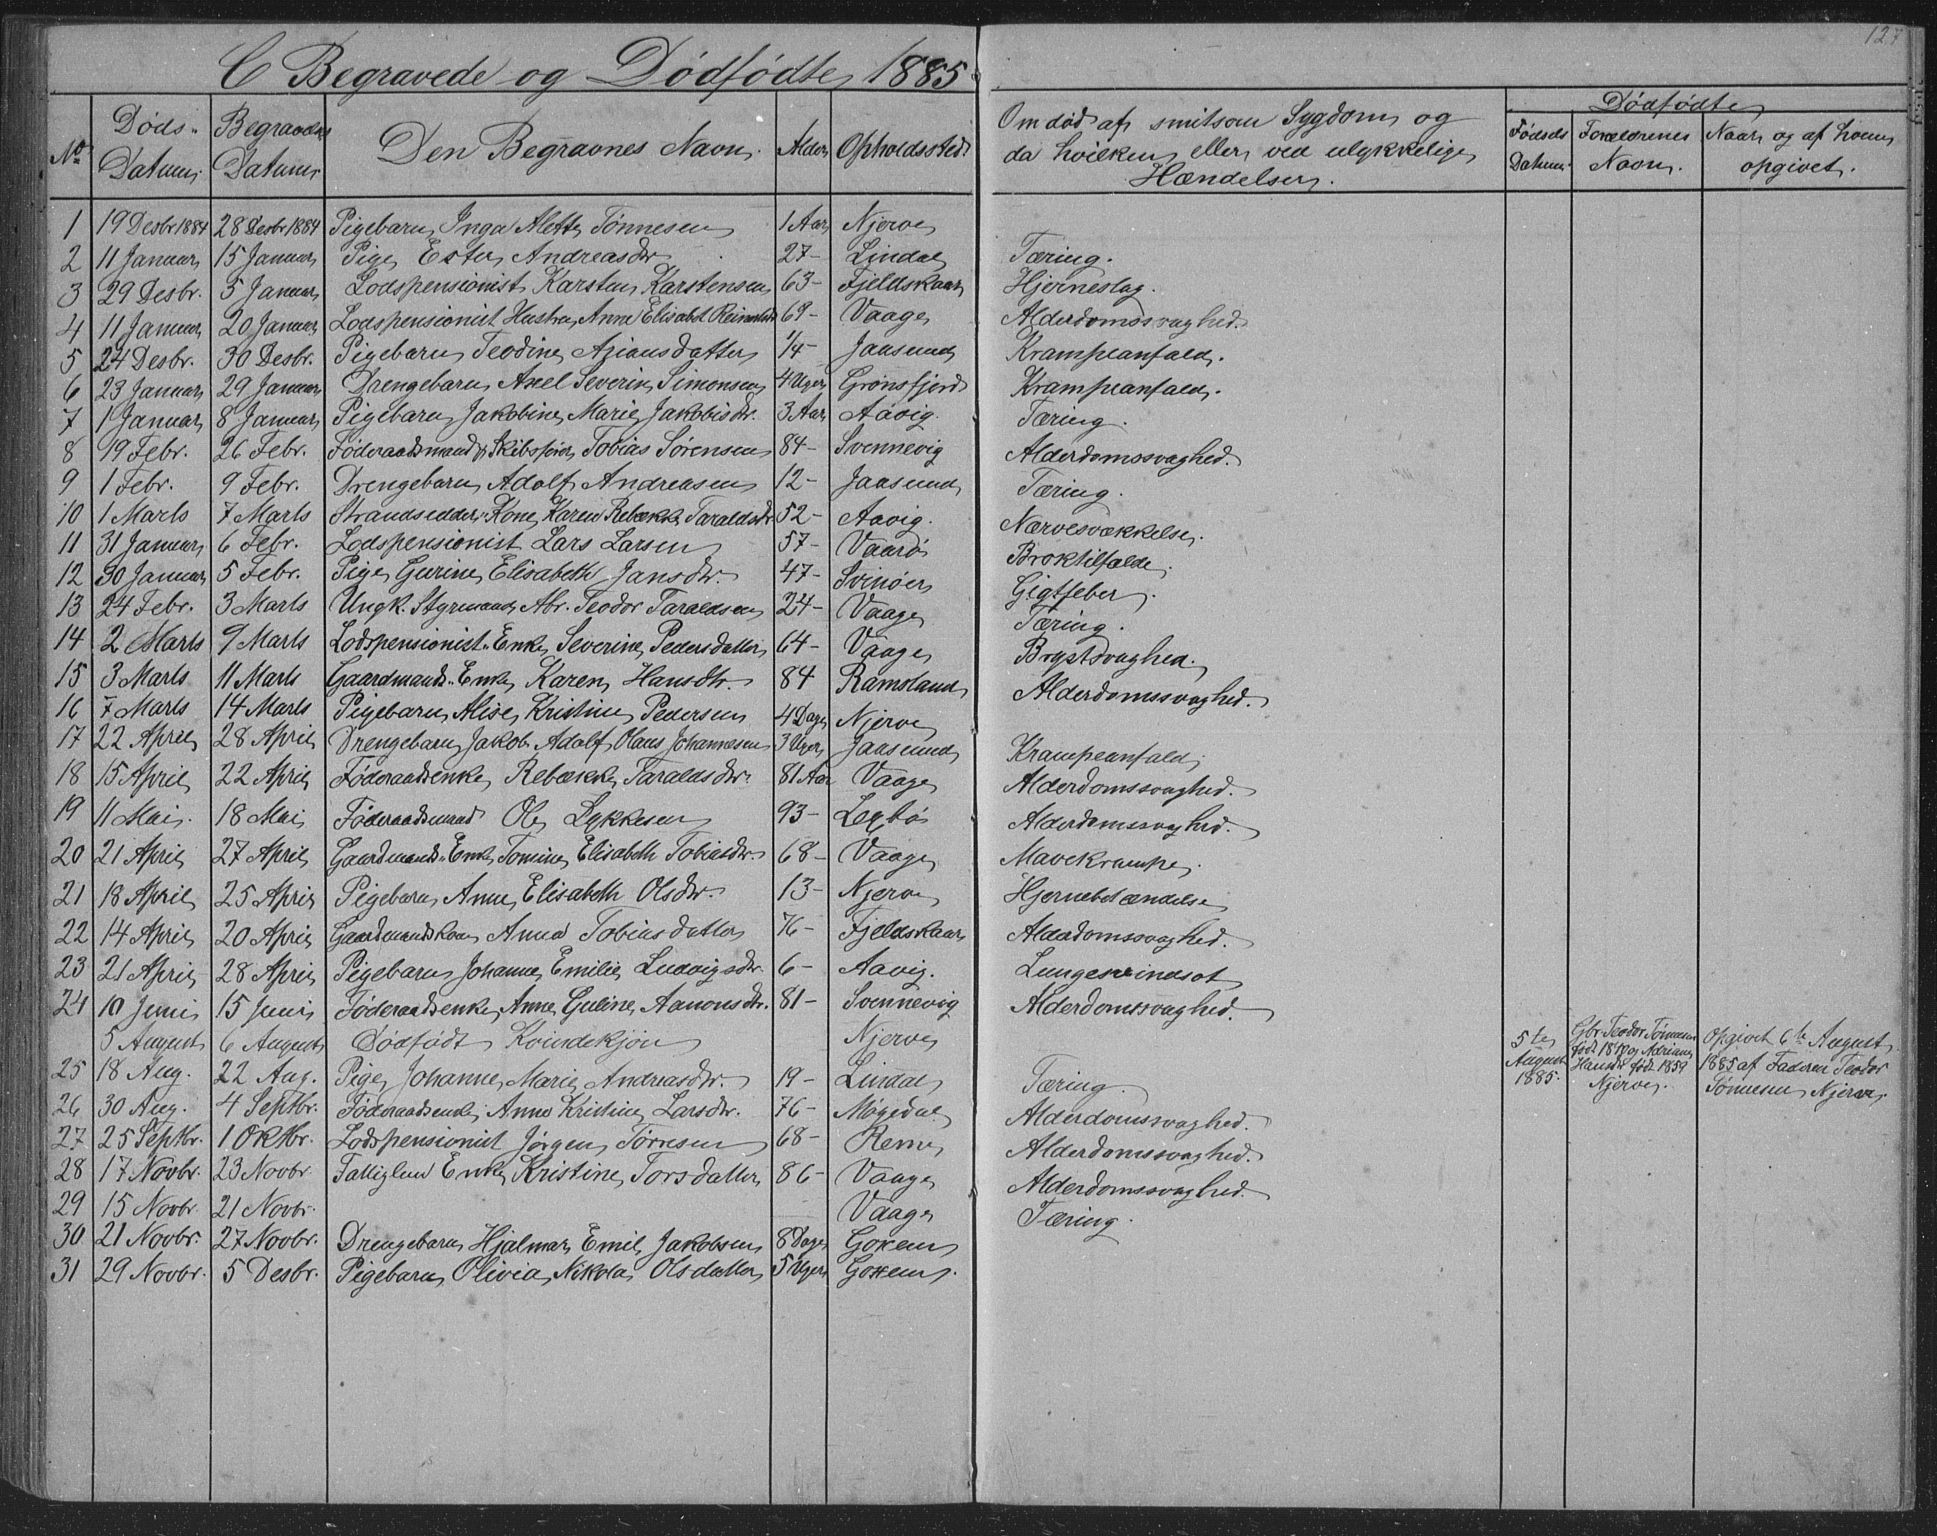 127
C Begravede og Dødfødte 1885
No Døds- Datum. Begravelses Datum. Den Begravnes Navn. Alder Opholdssted. Om død af smitsom Sygdom og da hvilken, eller ved ulykkelige Hændelser. Dødfødte
Fødsels Datum. Forældrenes Navn. Naar og af hvem opgivet.
1 19 Desbr 1884 28 Desbr 1884 Pigebarn Inga Alette Tønnesen 1 Aar Njerve
2 11 Januar 15 Januar Pige Ester Andreasdtr 27 - Lindal Tæring.
3 29 Desbr. 5 Januar Lodspensionist Karsten Karstensen 63 - Fjeldskaar Hjerneslag.
4 11 Januar 20 Januar Lodspensionist Hustru Anne Elisabet 69 - Vaage Alderdomssvaghed.
5 24 Desbr. 30 Desbr. Pigebarn Teodine Ariansdatter 1/4 - Jaasund Krampeanfald.
6 23 Januar 29 Januar Drengebarn Axel Severin Simonsen 4 Uger Grønsfjord Krampeanfald.
7 1 Januar 8 Januar Pigebarn Jakobine Marie Jakobsdtr. 3 Aar Aavig. Tæring.
8 19 Febr. 26 Febr. Føderaadsmand & Skibsfører Tobias Sørensen 84 - Svennevig Alderdomssvaghed.
9 1 Febr. 9 Febr. Drengebarn Adolf Andreasen 12 - Jaasund Tæring.
10 1 Marts 7 Marts Strandsidder-Kone Karen Rebekke Taraldsdtr 52 - Aavig. Nærvesvækkelse.
11 31 Januar 6 Febr. Lodspensionist Lars Larsen 57 - Vaarø Broktilfælde.
12 30 Januar 5 Febr. Pige Gurine Elisabeth Jansdtr. 47 - Svinøer Gigtfeber.
13 24 Febr. 3 Marts Ungk. Styrmand Abr. Teodor Taraldsen 24 - Vaage Tæring.
14 2 Marts 9 Marts Lodspensionist-Enke Severine Pedersdatter 64 - Vaage Brystsvaghed.
15 3 Marts 11 Marts Gaardmands-Enke Karen Hansdtr. 84 Ramsland Alderdomssvaghed.
16 7 Marts 14 Marts Pigebarn Alise Kristine Pedersen 4 Dage Njerve
17 22 April 28 April Drengebarn Jakob Adolf Olaus Johannesen 3 Uger Jaasund Krampeanfald
18 15 April 22 April Føderaadsenke Rebekke Taraldsdtr. 81 Aar Vaage Alderdomssvaghed.
19 11 Mai. 18 Mai Føderaadsmand Ole Lykkesen 93 - Legbø Alderdomssvaghed.
20 21 April 27 April Gaardmands-Enke Tomine Elisabeth Tobiasdtr. 68 - Vaage Mavekrampe.
21 18 April 25 April Pigebarn Anne Elisabeth Olsdtr. 13 - Njerve Hjernebetændelse
22 14 April 20 April Gaardmandskone Anna Tobiasdatter 76 - Fjeldskaar Alderdomssvaghed.
23 21 April 28 April Pigebarn Johanne Emilie Ludvigsdtr. 6 - Aavig. Lungesvindsot
24 10 Juni 15 Juni Føderaadsenke Anne Guline Aanonsdtr. 81 - Svennevig Alderdomssvaghed.
5 August 6 August Dødfødt Kvindekjøn Njerve 5te August 1885. Gbr. Teodor Tønnesen født og Adriane Hansdtr født 1859 Njerve. Opgivet 6te August 1885 af Faderen Teodor Tønnesen Njerve.
25 18 Aug. 22 Aug. Pige Johanne Marie Andreasdtr. 19 - Lindal Tæring.
26 30 Aug. 4 Septbr. Føderaadsenke Anne Kristine Larsdtr. 76 - Møgedal Alderdomssvaghed.
27 25 Septbr. 1 Oktbr. Lodspensionist Jørgen Tørresen 68 - Reme Alderdomssvaghed.
28 17 Novbr. 23 Novbr. Fattiglem Enke Kristine Torsdatter 86 - Vaage Alderdomssvaghed.
29 15 Novbr. 21 Novbr. Vaage Tæring.
30 21 Novbr. 27 Novbr. Drengebarn Hjalmar Emil Jakobsen 8 Dage Goxem
31 29 Novbr. 5 Desbr. Pigebarn Olivia Nikola Olsdatter 5 Uger Goxem.